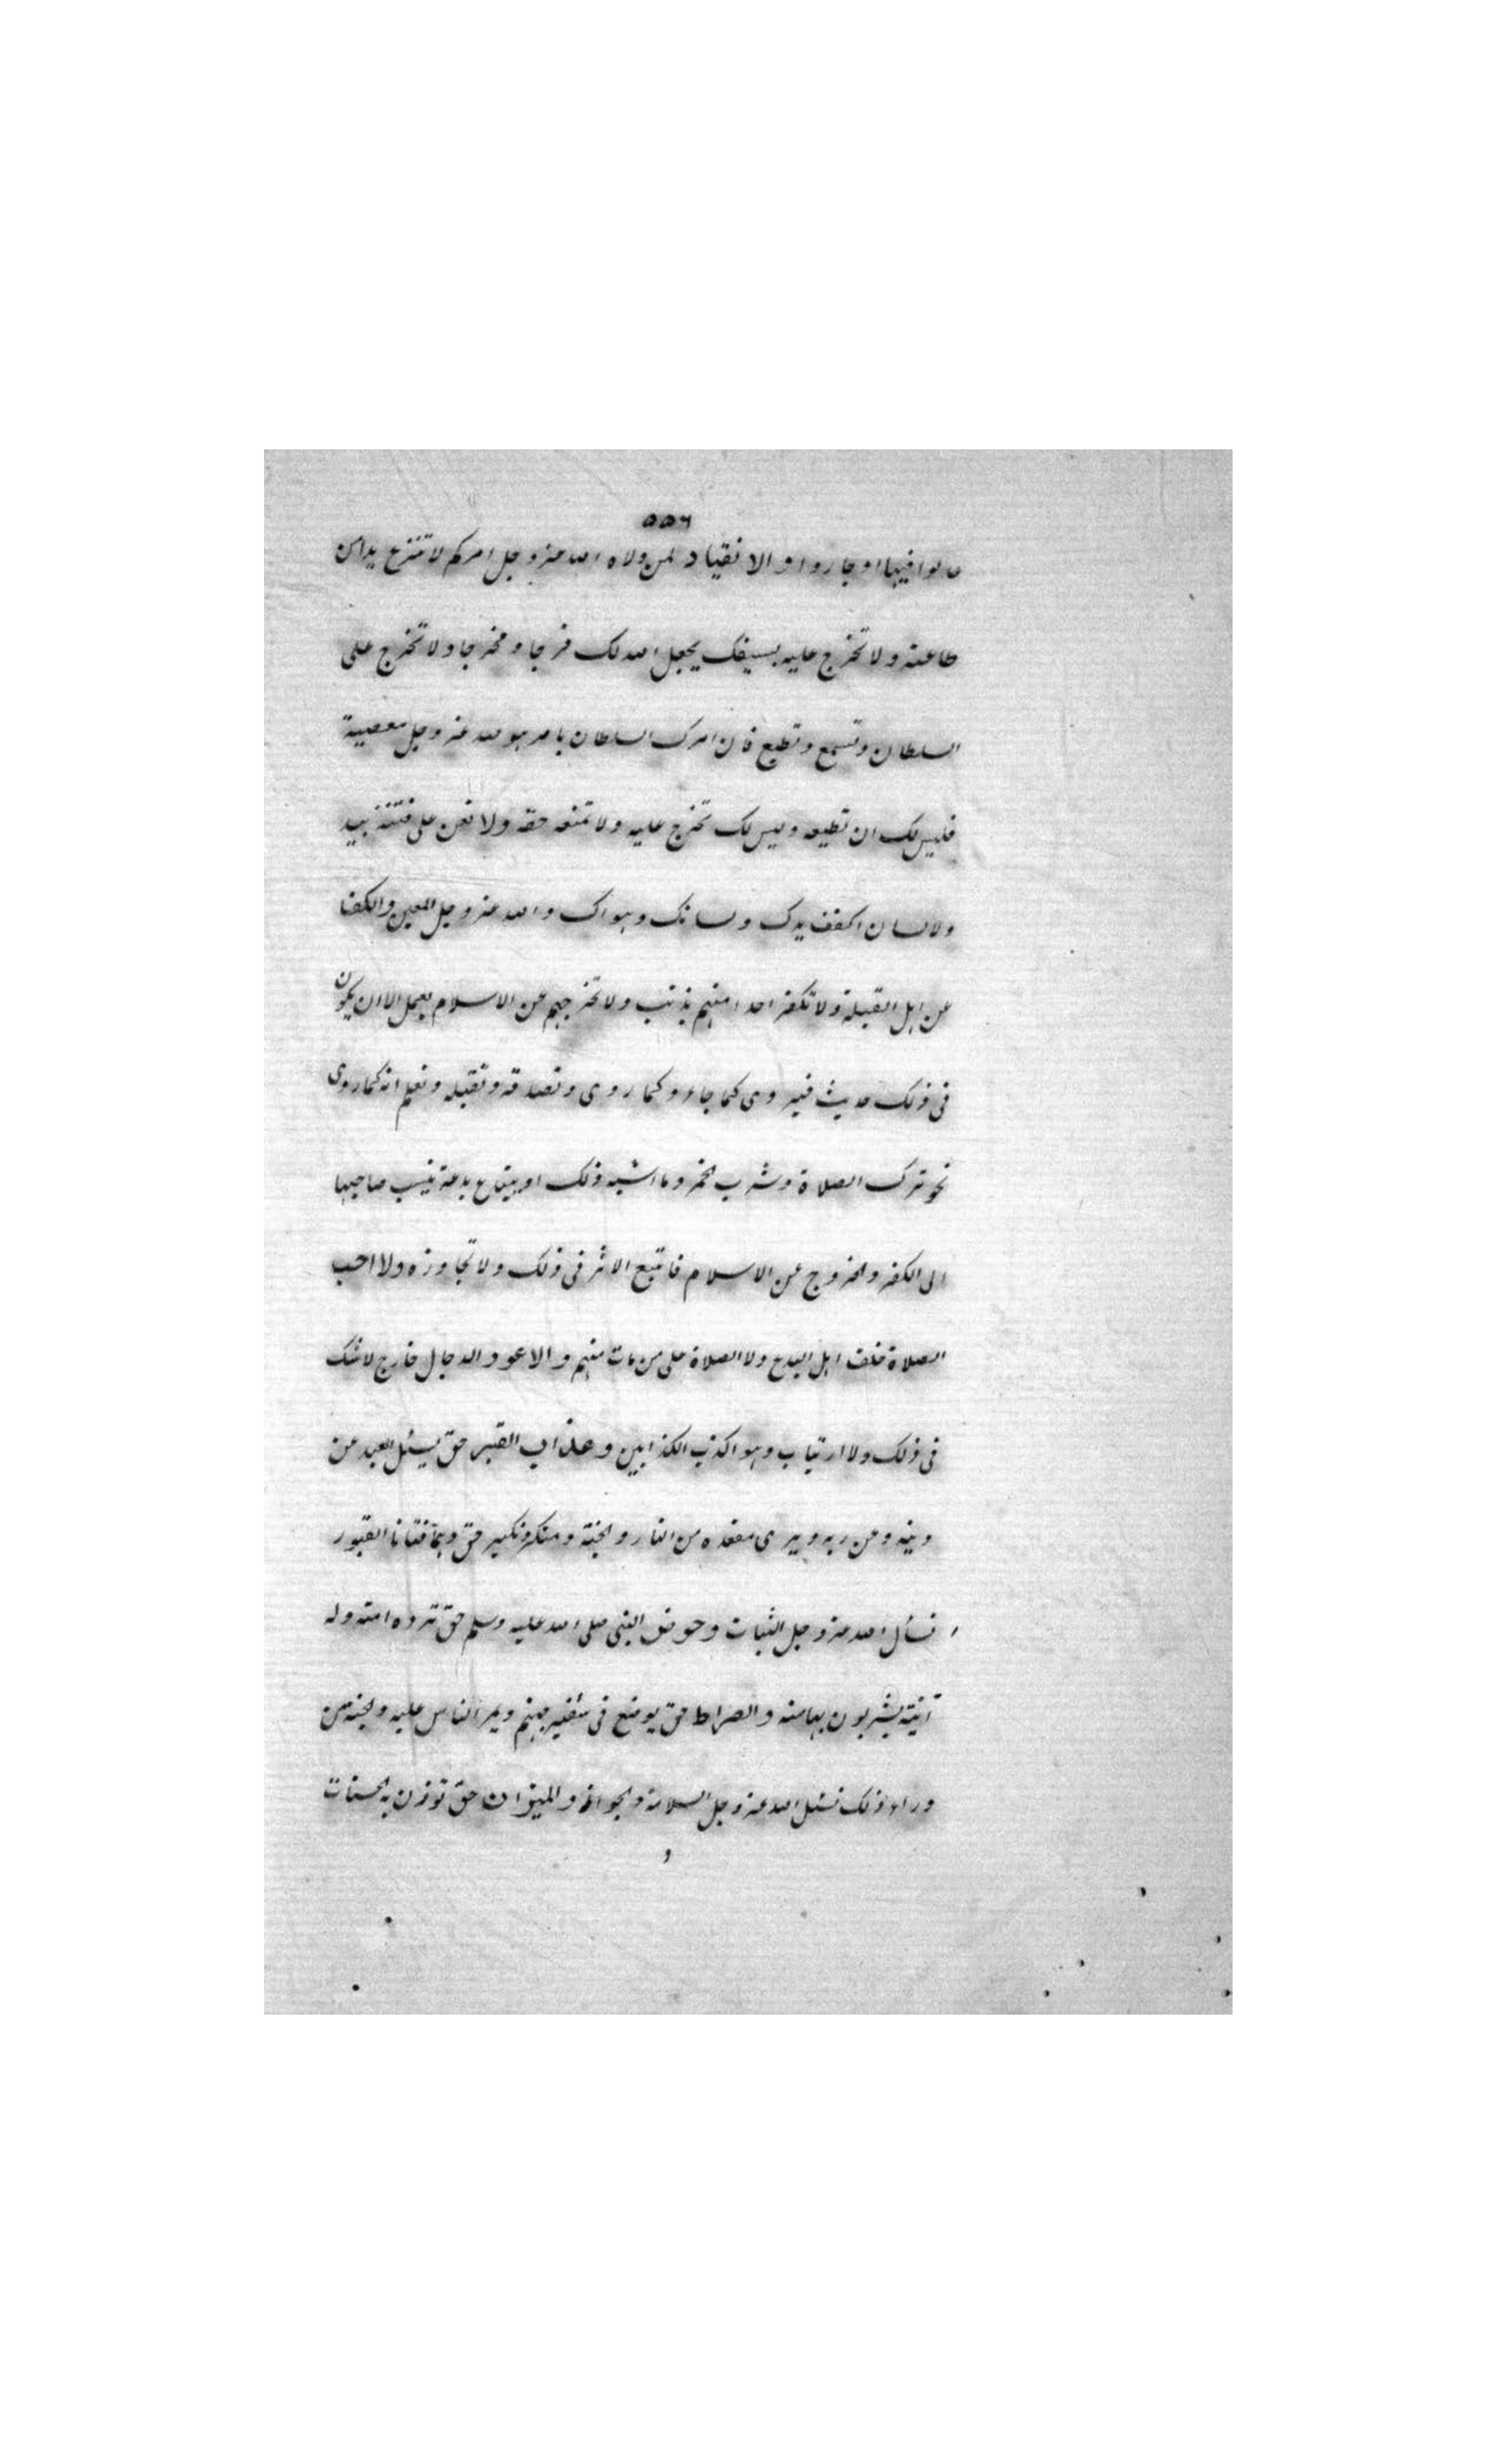 ٥٥٦
عدلوا فيها او جاروا والانقياد لمن ولاه الله عز وجل امركم لا تنزع يدا من
طاعته ولا تخرج عليه بسيفك يجعل الله لك فرجا ومخرجا ولا تخرج على
السلطان وتسمع وتطيع فان امرك السلطان بامر هو لله عز وجل معصية
فليس لك ان تطيعه وليس لك تخرج عليه ولا تمنعه حقه ولا تعن على فتنة بيد
ولا لسان اكفف يدك ولسانك وهواك والله عز وجل المعين والكف
عن اهل القبلة ولا تكفر احدا منهم بذنب ولا تخرجهم عن الاسلام بعمل الا ان يكون
فى ذلك حديث فيروى كما جاء وكما روى وتصدقه وتقبله وتعلم انه كما روى
نحو ترك الصلاة وشرب الخمر وما اشبه ذلك او يبتدع بدعة ينسب صاحبها
الى الكفر والخروج عن الاسلام فاتبع الاثر فى ذلك ولا تجاوزه ولا احب
الصلاة خلف اهل البدع ولا الصلاة على من مات منهم والاعور الدجال خارج لا شك
فى ذلك ولا ارتياب وهو اكذب الكذابين وعذاب القبر حق يسئل العبد عن
دينه وعن ربه ويرى مقعده من النار والجنة ومنكر ونكير حق وهما فتانا القبور
نسأل الله عز وجل الثبات وحوض النبى صلى الله عليه وسلم حق ترده امته وله
آنية يشربون بها منه والصراط حق يوضع فى شفير جهنم ويمر الناس عليه والجنة من
وراء ذلك نسئل الله عز وجل السلامة والجواز والميزان حق توزن به الحسنات
و